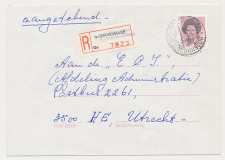 aangetekend
R 's-GRAVENHAGE
7823
Aan de "E.O.I",
(Afdeling Administratie)
Postbus 2261,
3500 HE, Utrecht